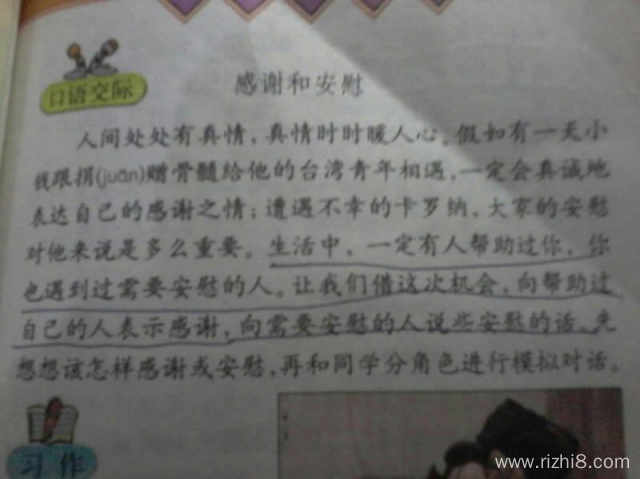 口语交际
感谢和安慰
人间处处有真情,真情时时暖人心。假如有一天小
钱跟捐(juān)赠骨髓给他的台湾青年相遇,一定会真诚地
表达自己的感谢之情;遭遇不幸的卡罗纳,大家的安慰
对他来说是多么重要。生活中,一定有人帮助过你,你
也遇到过需要安慰的人。让我们借这次机会,向帮助过
自己的人表示感谢,向需要安慰的人说些安慰的话。先
想想该怎样感谢或安慰,再和同学分角色进行模拟对话。
习作
www.rizhi8.com